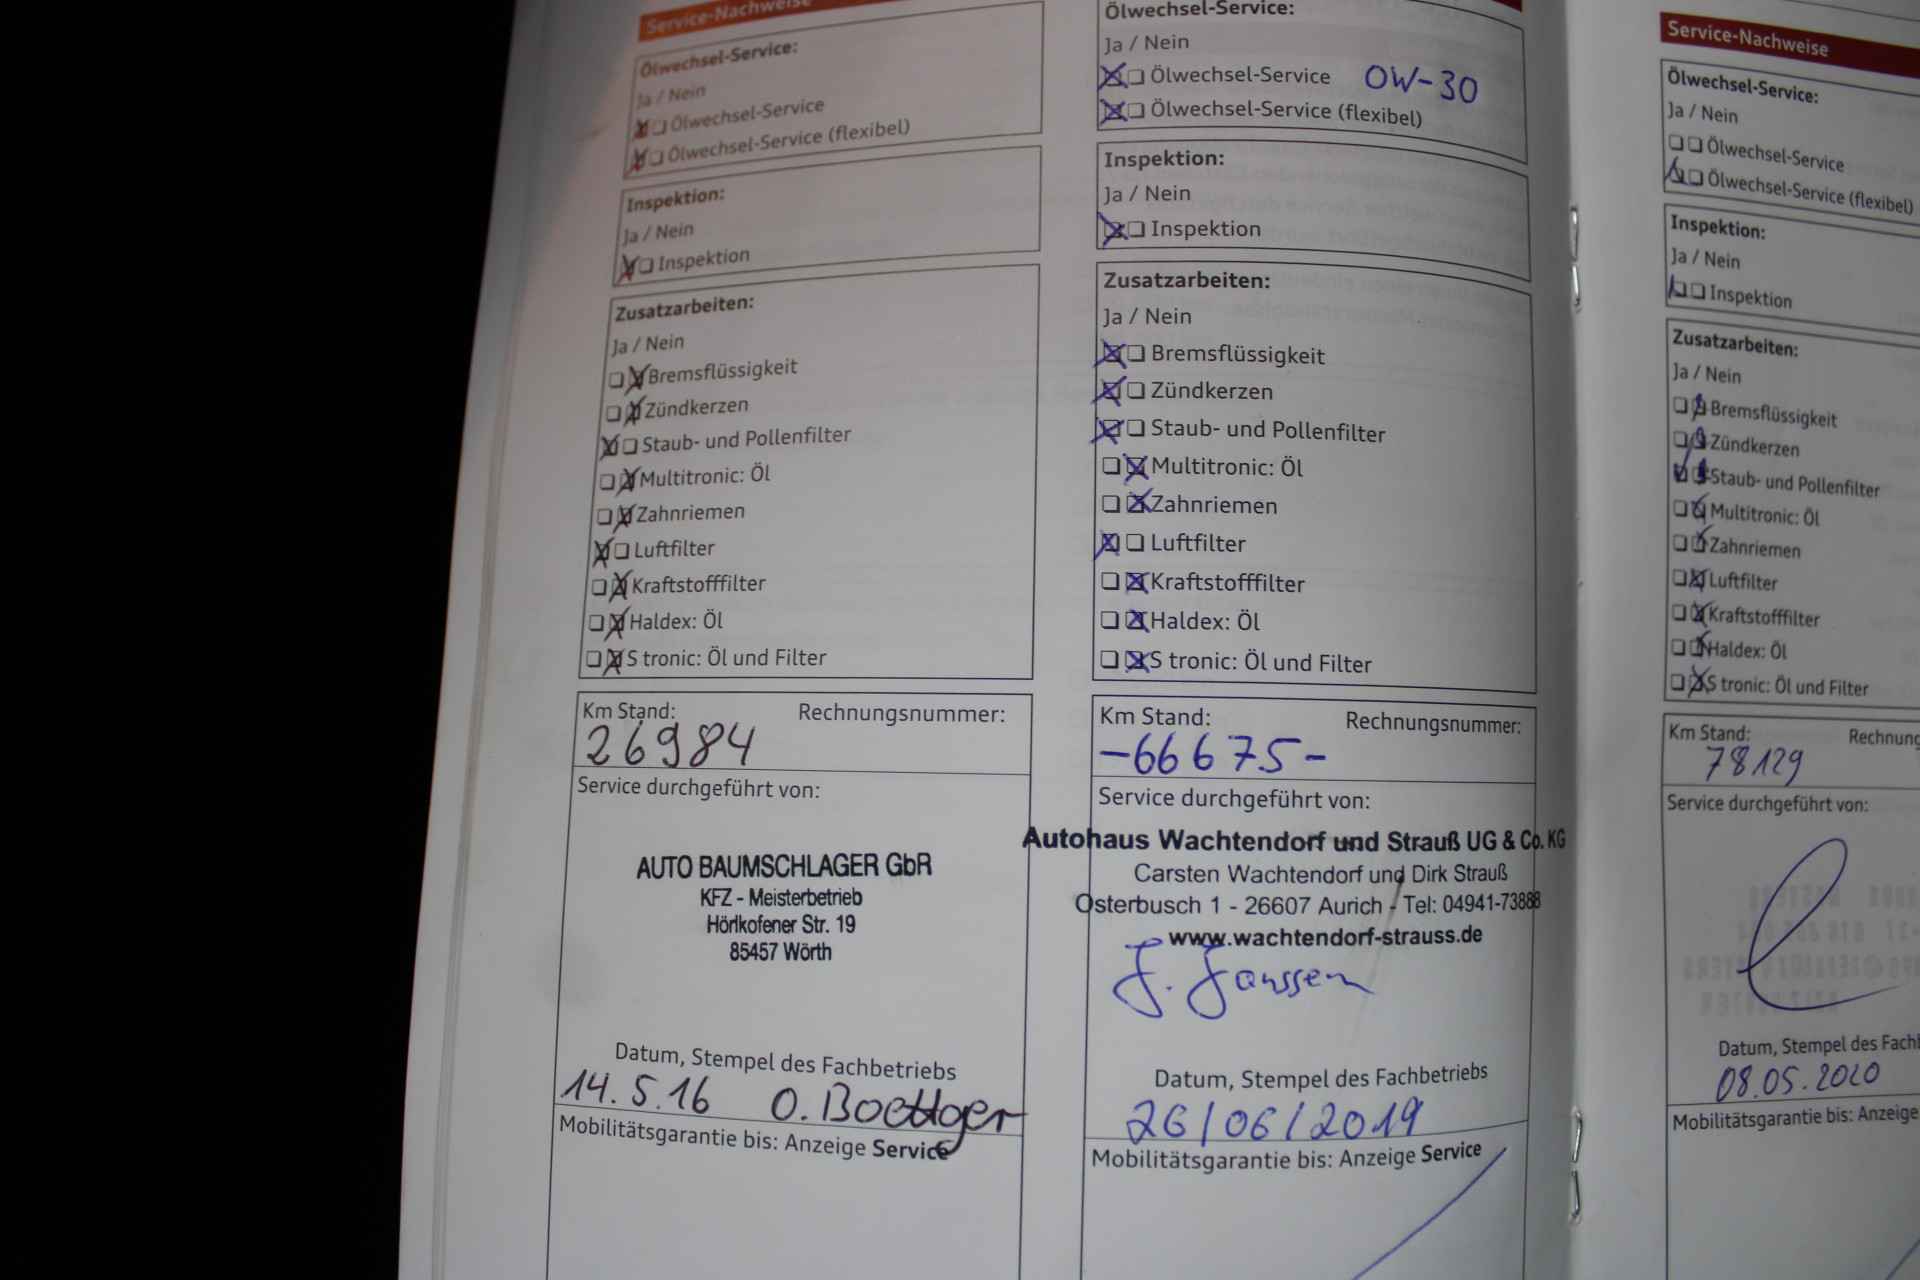 Service-Nachweise
Ölwechsel-Service:
Ja / Nein
Ölwechsel-Service
Ölwechsel-Service (flexibel)
Inspektion:
Ja / Nein
Inspektion
Zusatzarbeiten:
Ja / Nein
Bremsflüssigkeit
Zündkerzen
Staub- und Pollenfilter
Multitronic: Öl
Zahnriemen
Luftfilter
Kraftstofffilter
Haldex: Öl
S tronic: Öl und Filter
Km Stand: Rechnungsnummer:
26984
Service durchgeführt von:
AUTO BAUMSCHLAGER GbR
KFZ - Meisterbetrieb
Hörlkofener Str. 19
85457 Wörth
Datum, Stempel des Fachbetriebs
14.5.16 O. Boettger
Mobilitätsgarantie bis: Anzeige Service
Ölwechsel-Service:
Ja / Nein
Ölwechsel-Service OW-30
Ölwechsel-Service (flexibel)
Inspektion:
Ja / Nein
Inspektion
Zusatzarbeiten:
Ja / Nein
Bremsflüssigkeit
Zündkerzen
Staub- und Pollenfilter
Multitronic: Öl
Zahnriemen
Luftfilter
Kraftstofffilter
Haldex: Öl
S tronic: Öl und Filter
Km Stand: Rechnungsnummer:
-66675-
Service durchgeführt von:
Autohaus Wachtendorf und Strauß UG & Co. KG
Carsten Wachtendorf und Dirk Strauß
Osterbusch 1 - 26607 Aurich - Tel: 04941-73888
www.wachtendorf-strauss.de
J. Janssen
Datum, Stempel des Fachbetriebs
26/06/2019
Mobilitätsgarantie bis: Anzeige Service
Service-Nachweise
Ölwechsel-Service:
Ja / Nein
Ölwechsel-Service
Ölwechsel-Service (flexibel)
Inspektion:
Ja / Nein
Inspektion
Zusatzarbeiten:
Ja / Nein
Bremsflüssigkeit
Zündkerzen
Staub- und Pollenfilter
Multitronic: Öl
Zahnriemen
Luftfilter
Kraftstofffilter
Haldex: Öl
S tronic: Öl und Filter
Km Stand: Rechnung
78129
Service durchgeführt von:
Datum, Stempel des Fachb
08.05.2020
Mobilitätsgarantie bis: Anzeige